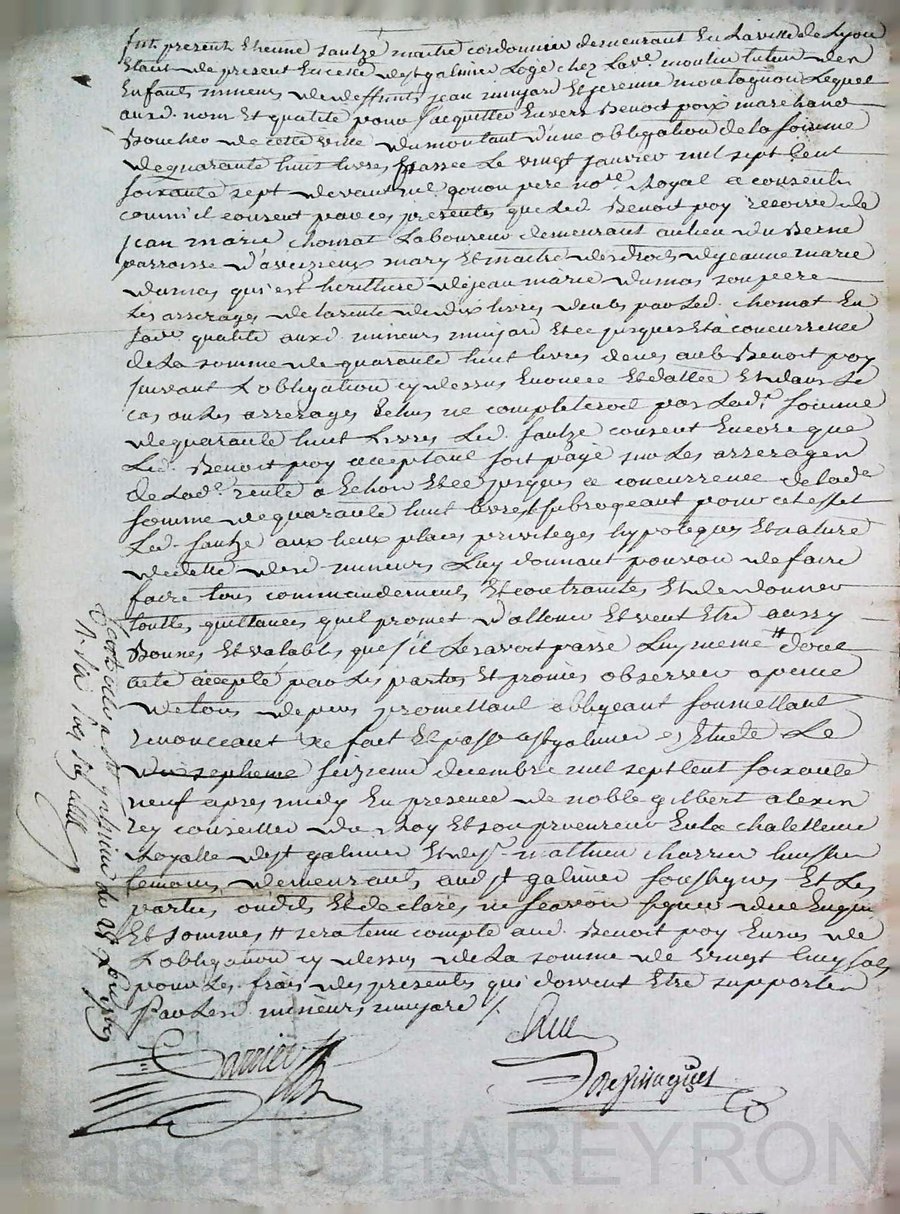 fut present Etienne sautze maitre cordonnier demeurant En La ville de Lyon
Etant de present En cette de st galmier Logé chez La ve moulin tuteur des
Enfants mineurs de deffunts jean mujard Et jerenne montagnon Lequel
aud. nom Et qualité pour s'acquitter Envers Benoit poix marchand
Boucher de cette ville du montant d'une obligation de la somme
de quarante huit livres passée Le vingt janvier mil sept Cent
soixante sept devant me gonon pere nore Royal a consenti
comm'il consent par ces presentes que Led. Benoit poy recoive de
jean marie chomat Laboureur demeurant au lieu du Berne
parroisse d'aveizieux mary Et maitre des droits de jeanne marie
dumas qui est heritiere de jean marie dumas son pere
Les arrerages de la rente de dix livres deubs par Led. chomat En
sa de qualité aux d. mineurs mujard Et ce jusques Et a concurrence
de La somme de quarante huit livres deues aud. Benoit poy
suivant L'obligation cy dessus Enoncée Et dattée Et dans Le
cas ou Les arrerages Echus ne completeroit pas Lade somme
de quarante huit Livres Led. sautze consent Encore que
Led. Benoit poy acceptant soit payé sur Les arrerages
de Lade rente a Echoir Et ce jusques a concurrence de lade
somme de quarante huit livres subrogeant pour cet effet
Led. sautze aux lieux places privileges hypoteques Et nature
de dette desd. mineurs Luy donnant pouvoir de faire
faire tous commandements Et contraintes Et de donner
touttes quittances quel promet d'allouer Et veut Etre aussy
Bonnes Et valables que s'il Les avoit passé Luy meme # dont
acte accepté par Les parties Et promis observer a peine
de tous depens promettant obligeant soumettant
renonceant &c fait Et passé a st galmier Etude Le
dix septieme seizieme decembre mil sept Cent soixante
neuf apres midy En presence de noble gilbert alexis
rey conseiller du Roy Et son procureur En La chatellenie
Royalle de st galmier Et de sr mathieu charrier huissier
temoins demeurants aud. st galmier soussignes Et Les
parties ont dit Et declaré ne scavoir signer de ce Enquis
Et sommés # sera tenu compte aud. Benoit poy En sus de
L'obligation cy dessus de La somme de vingt cinq sols
pour Les frais des presentes qui doivent Etre supportés
Par Lesd. mineurs mujard /.
Rey
Charrier
Desvissaguet
Controllé a st galmier le 28 Xbre 1769
Pascal CHAREYRON